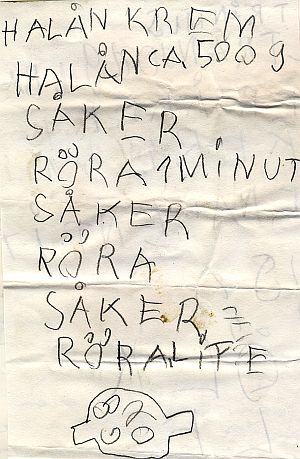 HALÅN KREM
HALÅNCA 500g
SÅKER
RÖRA 1 MINUT
SÅKER
RÖRA
SÅKER
RÖRA LITE